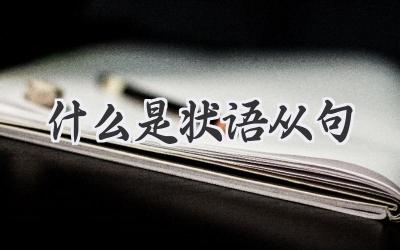 什么是状语从句